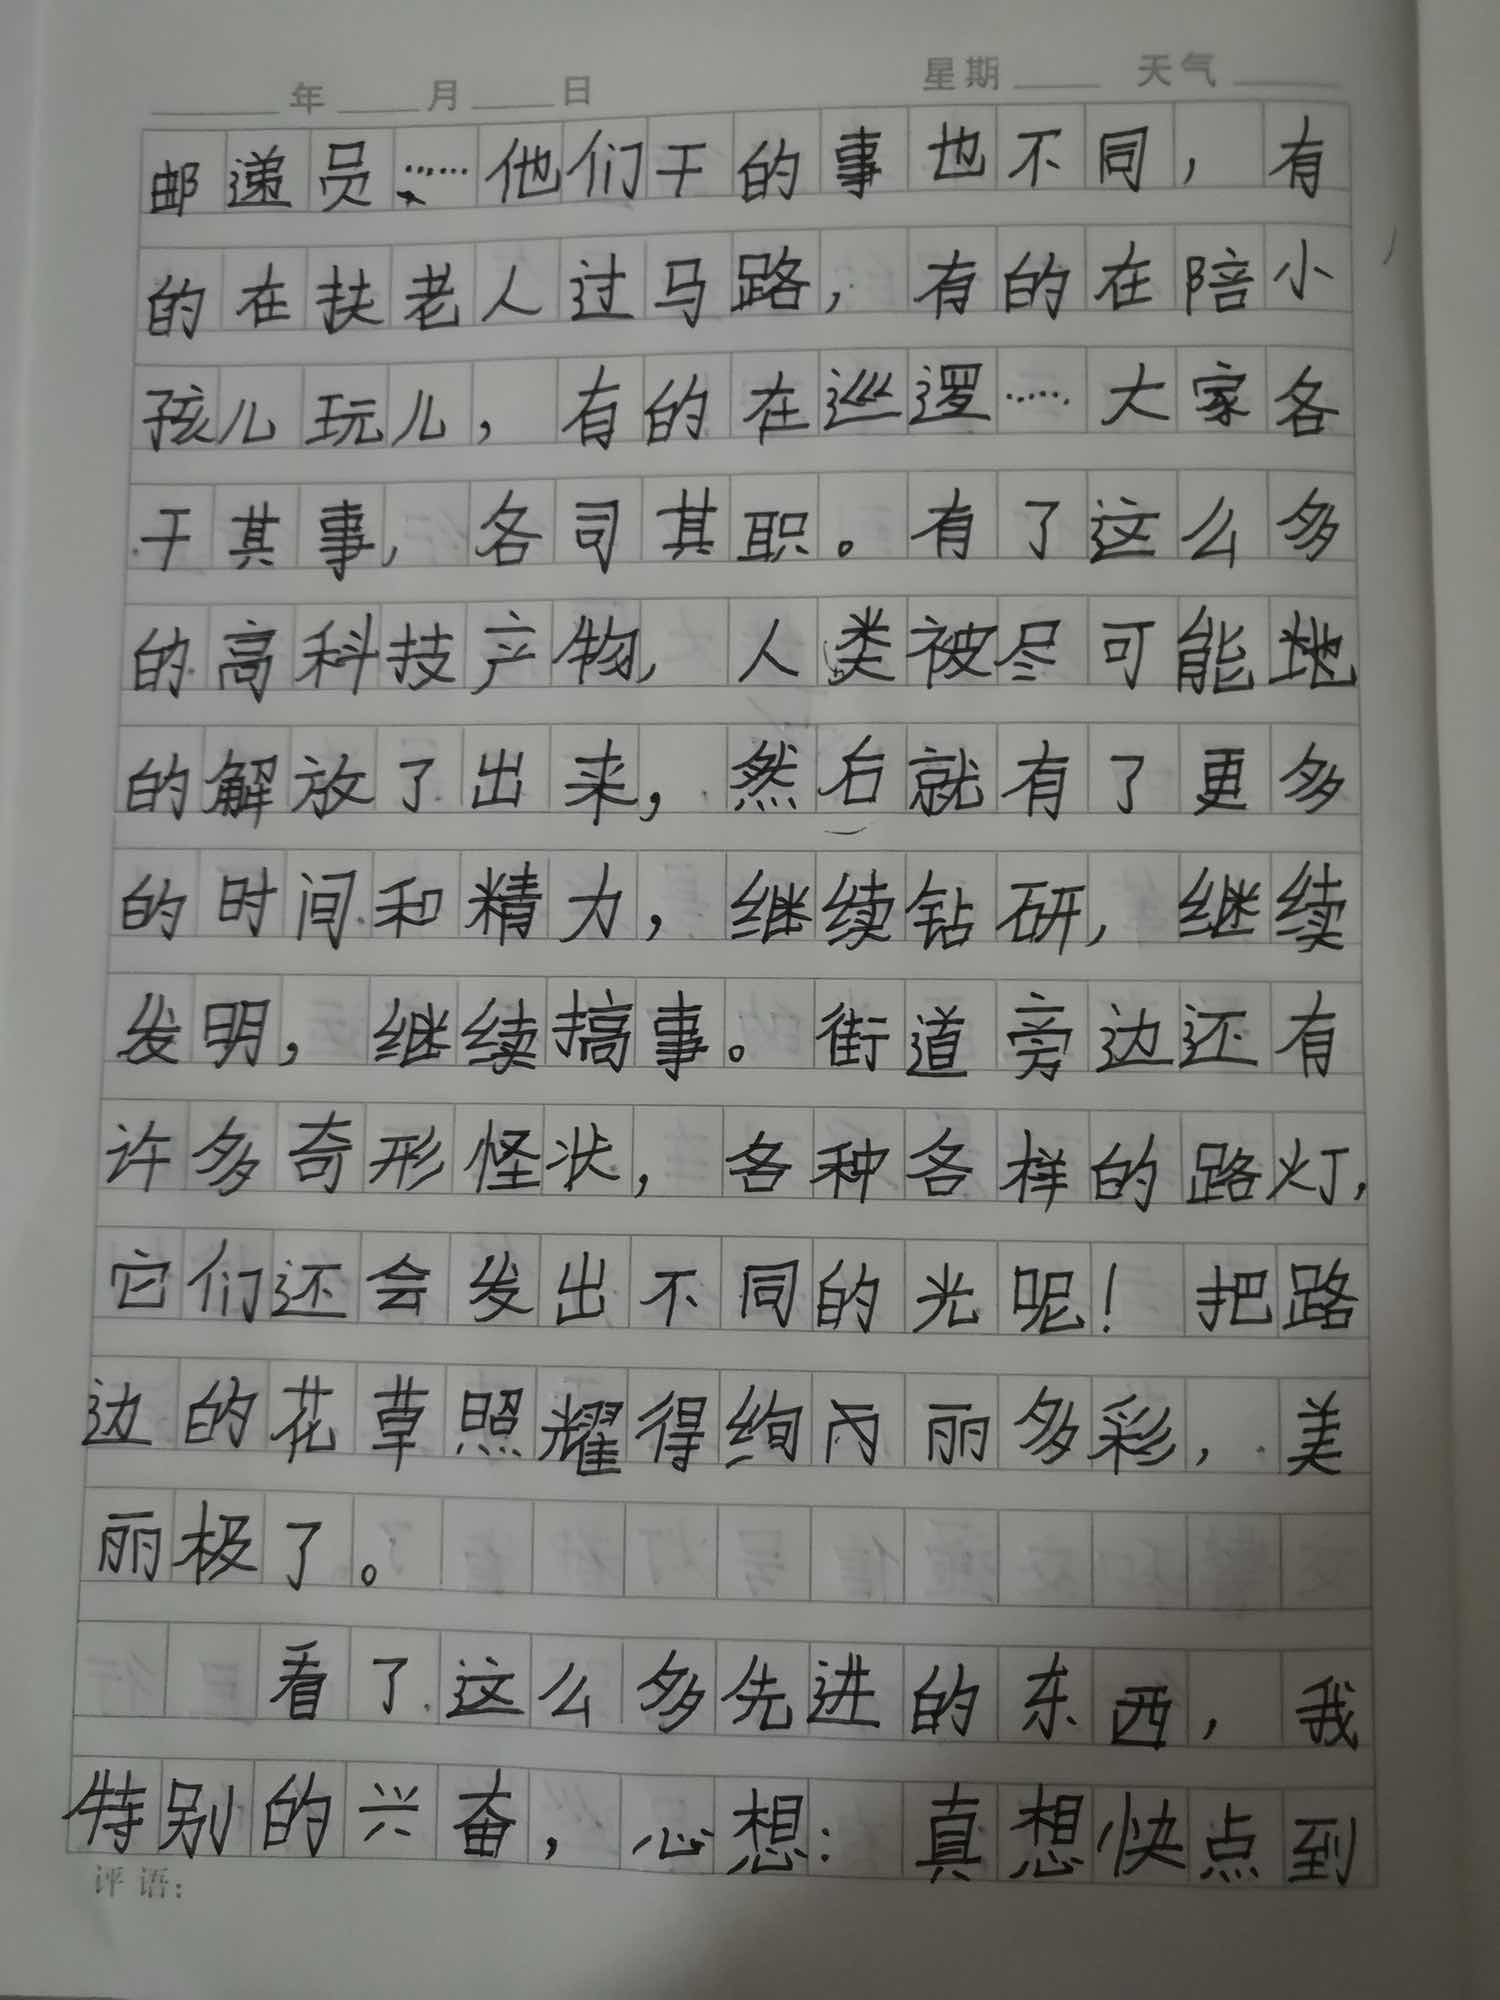 年 月 日 星期 天气
邮递员……他们干的事也不同，有
的在扶老人过马路，有的在陪小
孩儿玩儿，有的在巡逻……大家各
干其事，各司其职。有了这么多
的高科技产物，人类被尽可能地
的解放了出来，然后就有了更多
的时间和精力，继续钻研，继续
发明，继续搞事。街道旁边还有
许多奇形怪状，各种各样的路灯，
它们还会发出不同的光呢！把路
边的花草照耀得绚丽多彩，美
丽极了。
看了这么多先进的东西，我
特别的兴奋，心想：真想快点到
评语：